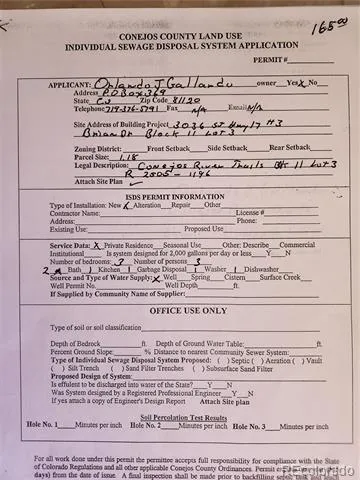 165.00
CONEJOS COUNTY LAND USE
INDIVIDUAL SEWAGE DISPOSAL SYSTEM APPLICATION
PERMIT #
APPLICANT: Orlando J Gallardo owner Yes X No
Address P.O Box 369
State Co Zip Code 81120
Telephone 719-376-5791 Fax N/A Email N/A
Site Address of Building Project 3036 St Hwy 17 #3
Brian Dr Block 11 Lot 3
Zoning District: Front Setback Side Setback Rear Setback
Parcel Size: 1.18
Legal Description: Conejos River Trails Blk 11 Lot 3
R 2005-1196
Attach Site Plan ✓
ISDS PERMIT INFORMATION
Type of Installation: New X Alteration Repair Other
Contractor Name: License #
Address: Phone:
Existing Use: Proposed Use
Service Data: X Private Residence Seasonal Use Other: Describe Commercial
Institutional Is system designed for 2,000 gallons per day or less Y N
Number of bedrooms: 3 Number of persons 3
2 Bath 1 Kitchen 1 Garbage Disposal 1 Washer 1 Dishwasher
Source and Type of Water Supply: X Well Spring Cistern Surface Creek
Well Permit No. Well Depth ft.
If Supplied by Community Name of Supplier:
OFFICE USE ONLY
Type of soil or soil classification
Depth of Bedrock ft. Depth of Ground Water Table: ft.
Percent Ground Slope: % Distance to nearest Community Sewer System:
Type of Individual Sewage Disposal System Proposed: ( ) Septic ( ) Aeration ( ) Vault
( ) Silt Trench ( ) Sand Filter Trenches ( ) Subsurface Sand Filter
Proposed Design of System:
Is effluent to be discharged into water of the State? Y N
Was System designed by a Registered Professional Engineer Y N
If yes attach a copy of Engineer's Design Report Attach Site plan
Soil Percolation Test Results
Hole No. 1 Minutes per inch Hole No. 2 Minutes per inch Hole No. 3 Minutes per inch
For all work done under this permit the permittee accepts full responsibility for compliance with the State
of Colorado Regulations and all other applicable Conejos County Ordinances. Permit
date of issuance. A final inspection shall be made prior to
REcolorado